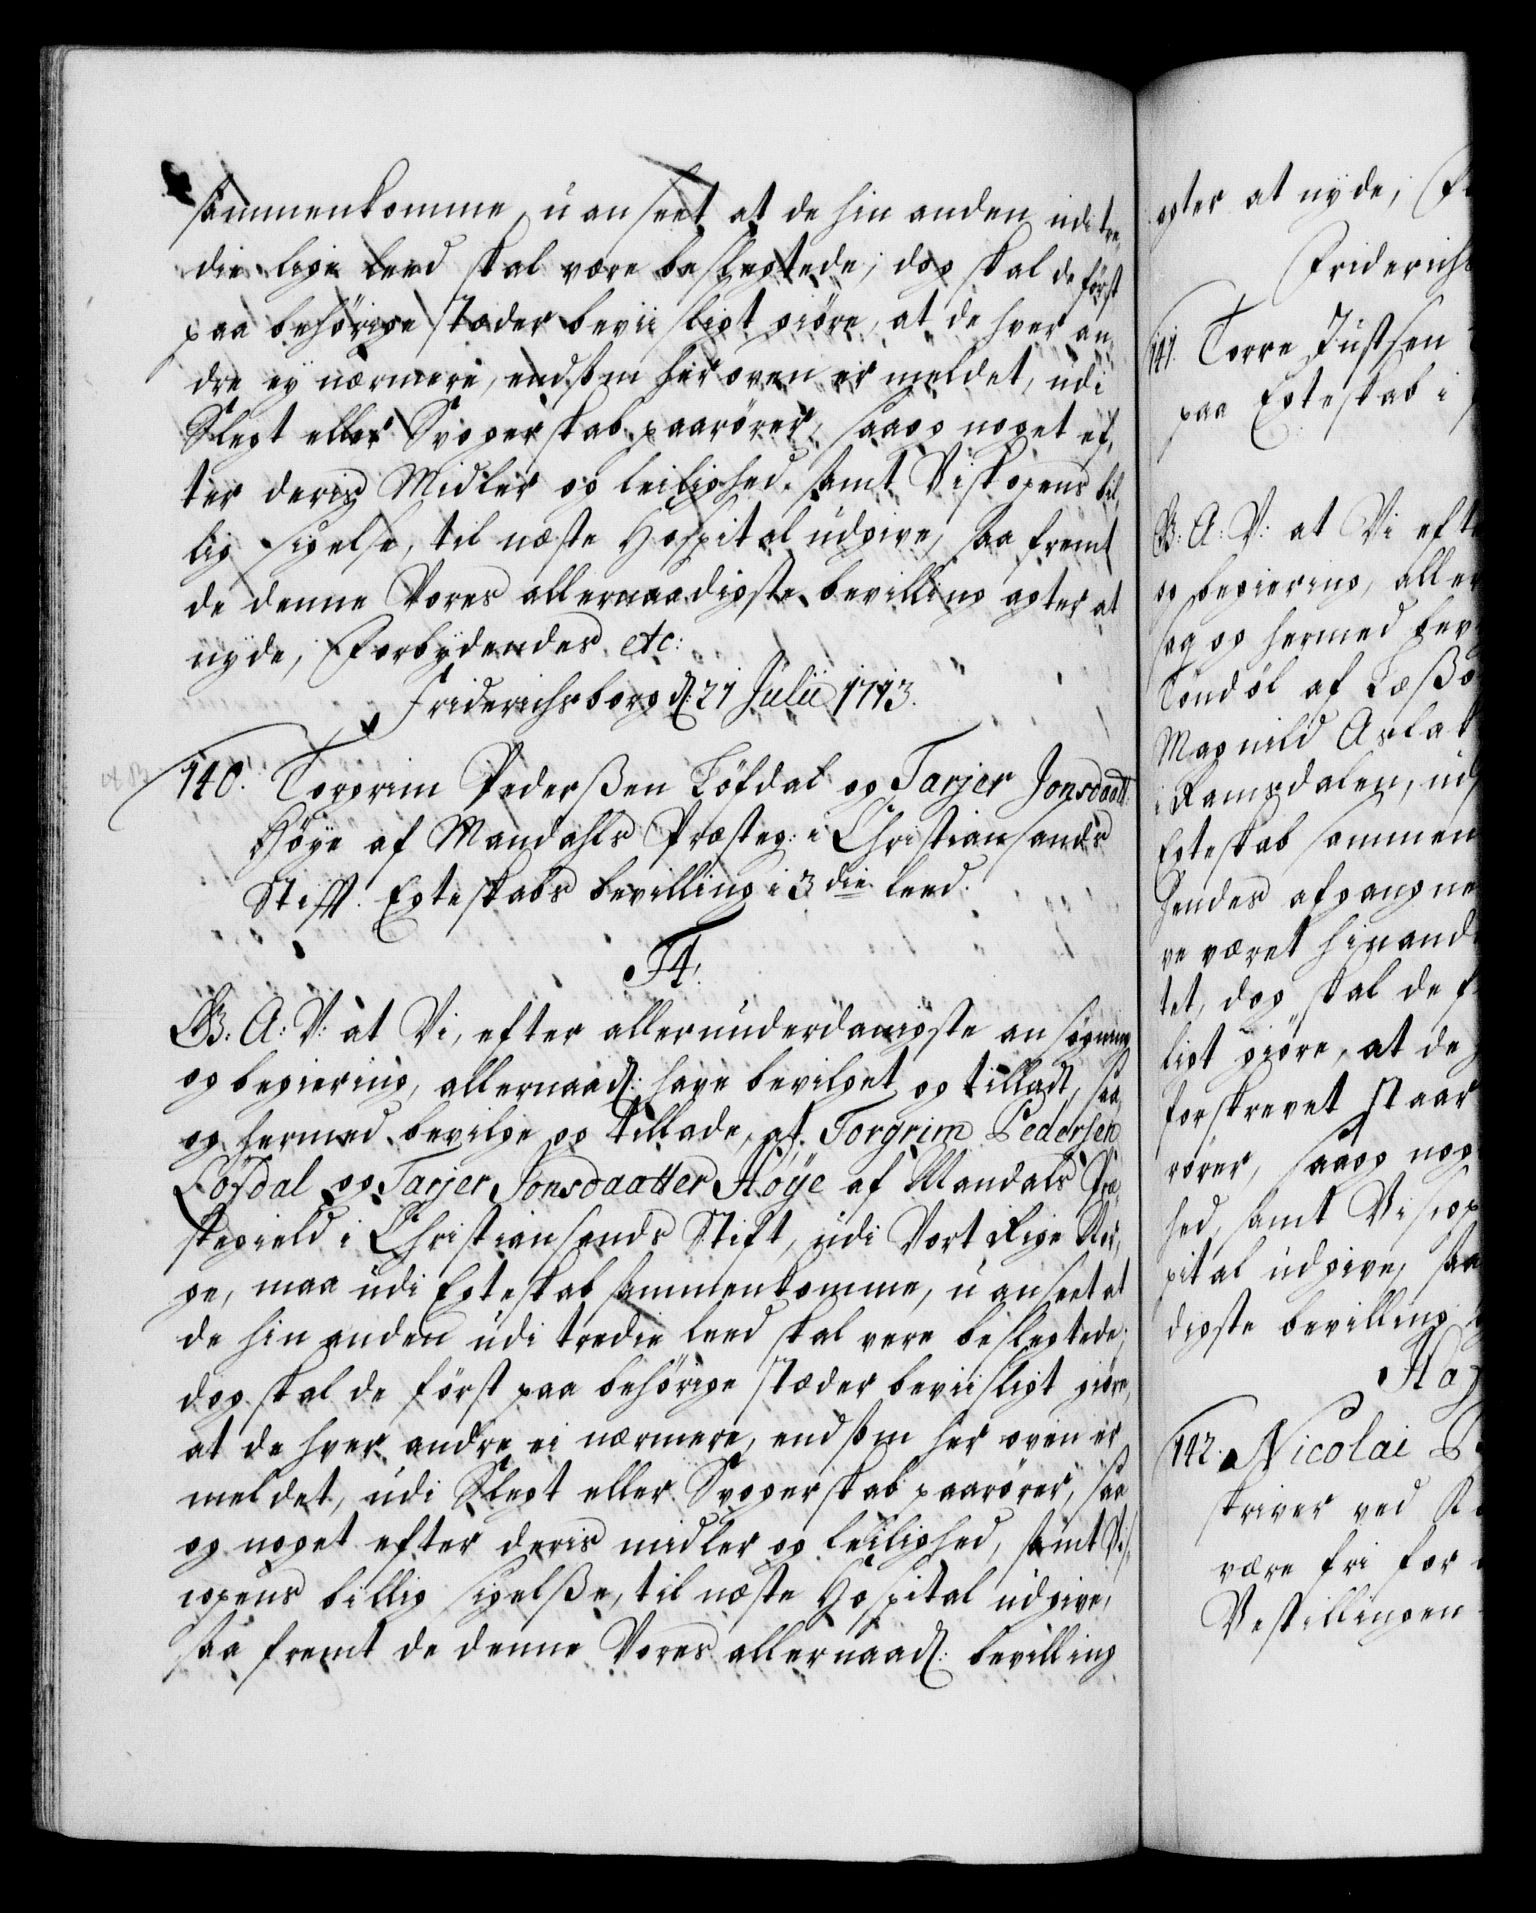 sammenkomme, uanseet at de hin anden udi tre,
die lige leed skal være beslegtede; dog skal de först
paa behörige stæder beviisligt giöre, at de hver an,
dre ey nærmere, endsom her oven er meldet, udi
Slegt eller Svogerskab paarörer, saa og noget ef,
ter deris Midler og leilighed, samt Biskopens bil,
lig sigelse, til næste Hospital udgive, saa fremt
de denne Vores allernaadigste bevilling agter at
nyde; Forbydendes etc:
Friderichsborg d: 21 Julii 1713.
140. Torgrim Pederßen Löfdal og Tarjer Jonsdaatt:
Höye af Mandahls Præsteg: i Christiansands
Stifft. Egteskabs bevilling i 3die leed.
F4.
G. A: V: at Vi, efter allerunderdanigste ansögning
og begiering, allernaad: have bevilget og tilladt, saa
og hermed bevilge og tillade, at Torgrim Pedersen
Löfdal og Tarjer Jonsdaatter Höye af Mandals Præ,
stegield i Christiansands Stift, udi Vort Rige Nor,
ge, maa udi Egteskab sammenkomme, uanseet at
de hin anden udi tredie leed skal være beslegtede;
dog skal de först paa behörige stæder beviisligt giöre,
at de hver andre ei nærmere, endsom her oven er
meldet, udi Slegt eller Svogerskab paarörer, saa
og noget efter deris midler og leilighed, samt Bis,
copens billig sigelße, til næste Hospital udgive,
saa fremt de denne Vores allernaad: bevilling
agter at nyde; F
Friderichs
141. Torre Justsen
paa Egteskab i
G: A: V: at Vi eft
og begiering, aller
saa og hermed bev
Töndöl af Læßö
Magnild Aslak
i Ramsdalen, ud
Egteskab sammen
hendes afgangne
ve været hinand
tet, dog skal de f
ligt giöre, at de
forskrevet staar
rörer, saa og nog
hed, samt Biscop
pital udgive, saa
digste bevilling
Ha
142. Nicolai P
skriver ved
være fri for
Bestillingen